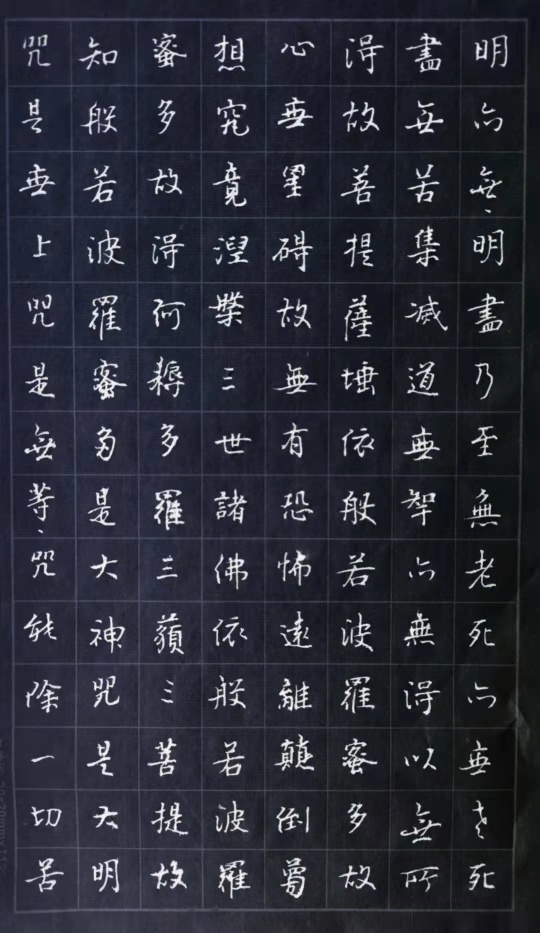 明亦無、明盡乃至無老死亦無老死
盡無苦集滅道無智亦無得以無所
得故菩提薩埵依般若波羅蜜多故
心無罣碍故無有恐怖遠離顛倒夢
想究竟涅槃三世諸佛依般若波羅
蜜多故得阿耨多羅三藐三菩提故
知般若波羅蜜多是大神咒是大明
咒是無上咒是無等、咒能除一切苦